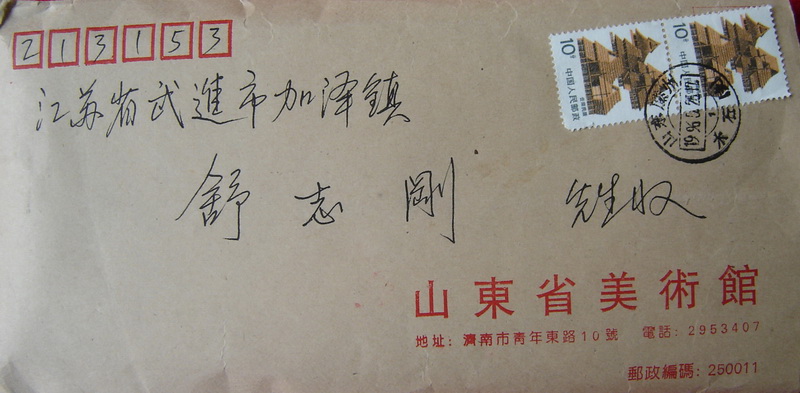 213153
江苏省武進市加泽鎮
舒志剛 先生收
10分
中国人民邮政
10分
山東省美術館
地址: 濟南市青年東路10號 電話: 2953407
郵政編碼: 250011